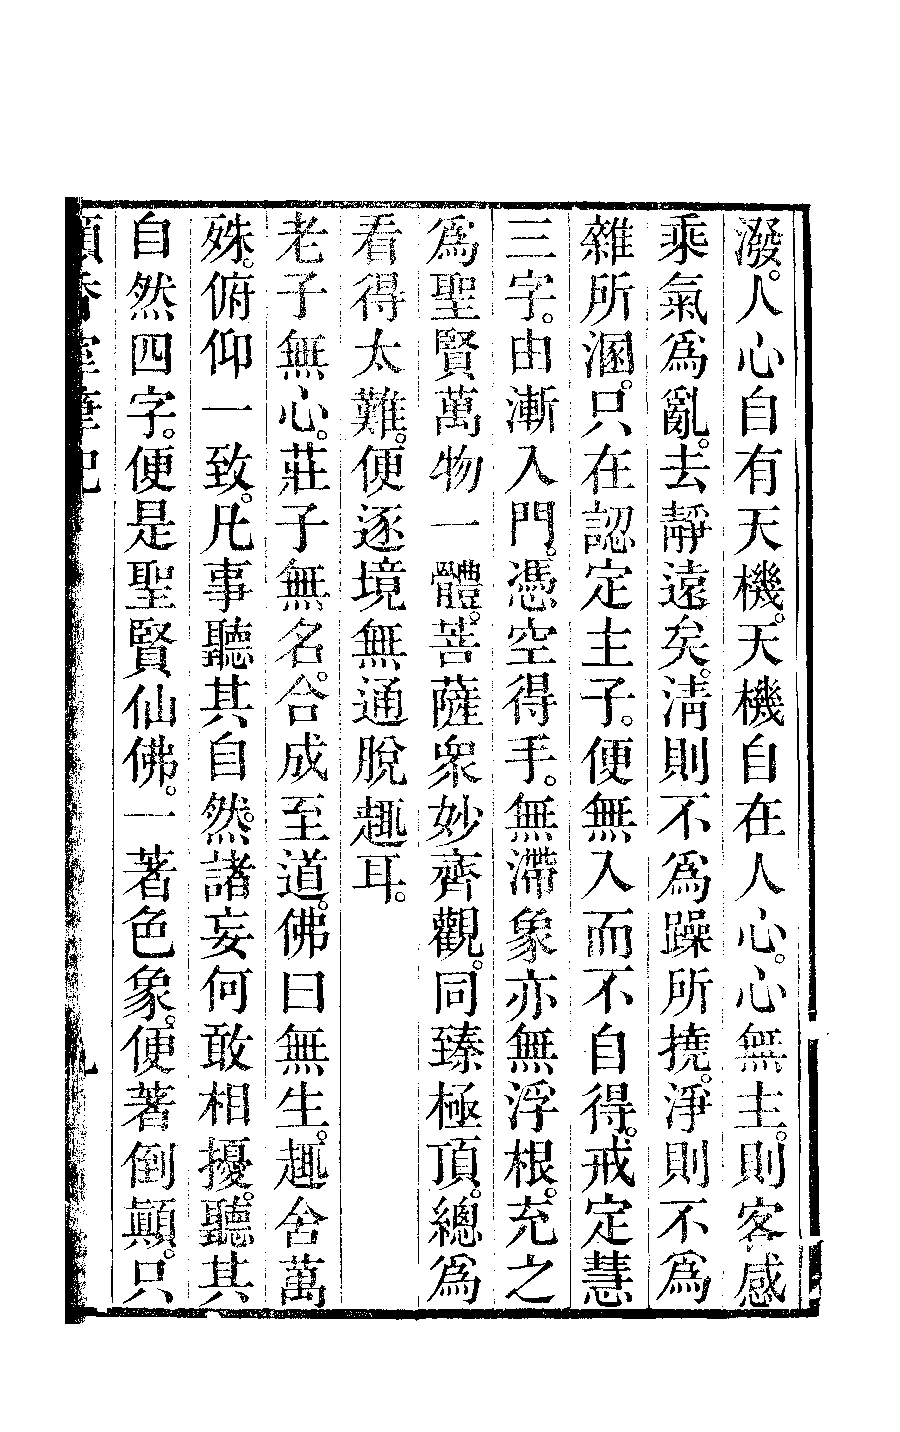 潑。人心自有天機。天機自在人心。心無主。則客感
乘氣爲亂。去靜遠矣。淸則不爲躁所撓。淨則不爲
雜所溷。只在認定主子。便無入而不自得。戒定慧
三字。由漸入門。憑空得手。無滯象亦無浮根。充之
爲聖賢萬物一體。菩薩衆妙齊觀。同臻極頂。總爲
看得太難。便逐境無通脫趣耳。
老子無心。莊子無名。合成至道。佛曰無生。趣舍萬
殊。俯仰一致。凡事聽其自然。諸妄何敢相擾。聽其
自然四字。便是聖賢仙佛。一著色象。便著倒顚。只
香室筆記
九